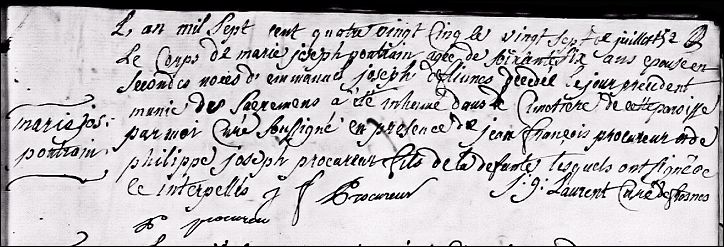 L'an mil sept cent quatre vingt cinq le vingt sept de juillet
le corps de marie joseph pontrain agée de soixante six ans epouse en
secondes noces de emmanuel joseph decedée le jour precedent
munie des sacremens a été inhumé dans le cimetière de cette paroisse
marie jos: par moi curé soussigné en presence de jean françois procureur et de
pontrain philippe joseph procureur fils de la defunte lesquels ont signé de
ce interpellés j f Procureur j: g: Laurent curé de fosnes
p j procureur